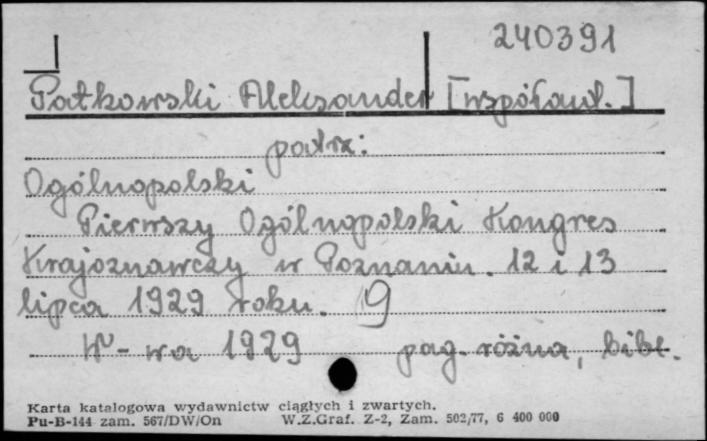 240391
Patkowski Aleksander [współaut.]
patrz:
Ogólnopolski
Pierwszy Ogólnopolski Kongres
Krajoznawczy w Poznaniu. 12 i 13
lipca 1929 roku. 9
W-wa 1929 pag. różna, bibl.
Karta katalogowa wydawnictw ciągłych i zwartych.
Pu-B-144 zam. 567/DW/On W.Z.Graf. Z-2, Zam. 502/77, 6 400 000